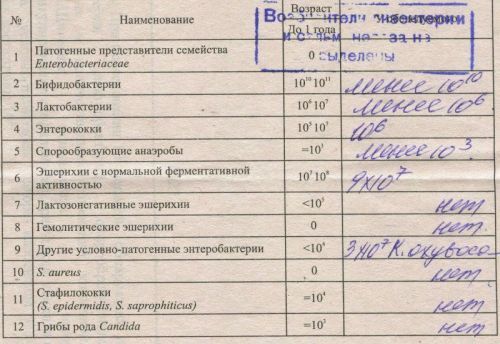 № Наименование Возраст
До 1 года
выделены
1 Патогенные представители семейства
Enterobacteriaceae 0
2 Бифидобактерии 10¹⁰ 10¹¹ менее 10¹⁰
3 Лактобактерии 10⁶ 10⁷ менее 10⁶
4 Энтерококки 10⁵ 10⁷ 10⁶
5 Спорообразующие анаэробы =10³ менее 10³.
6 Эшерихии с нормальной ферментативной
активностью 10⁷ 10⁸ 9х10⁷
7 Лактозонегативные эшерихии <10⁵ нет
8 Гемолитические эшерихии 0 нет.
9 Другие условно-патогенные энтеробактерии <10⁴ 3х10⁷ К.
10 S. aureus 0 нет.
11 Стафилококки
(S. epidermidis, S. saprophiticus) =10⁴ нет
12 Грибы рода Candida =10³ нет